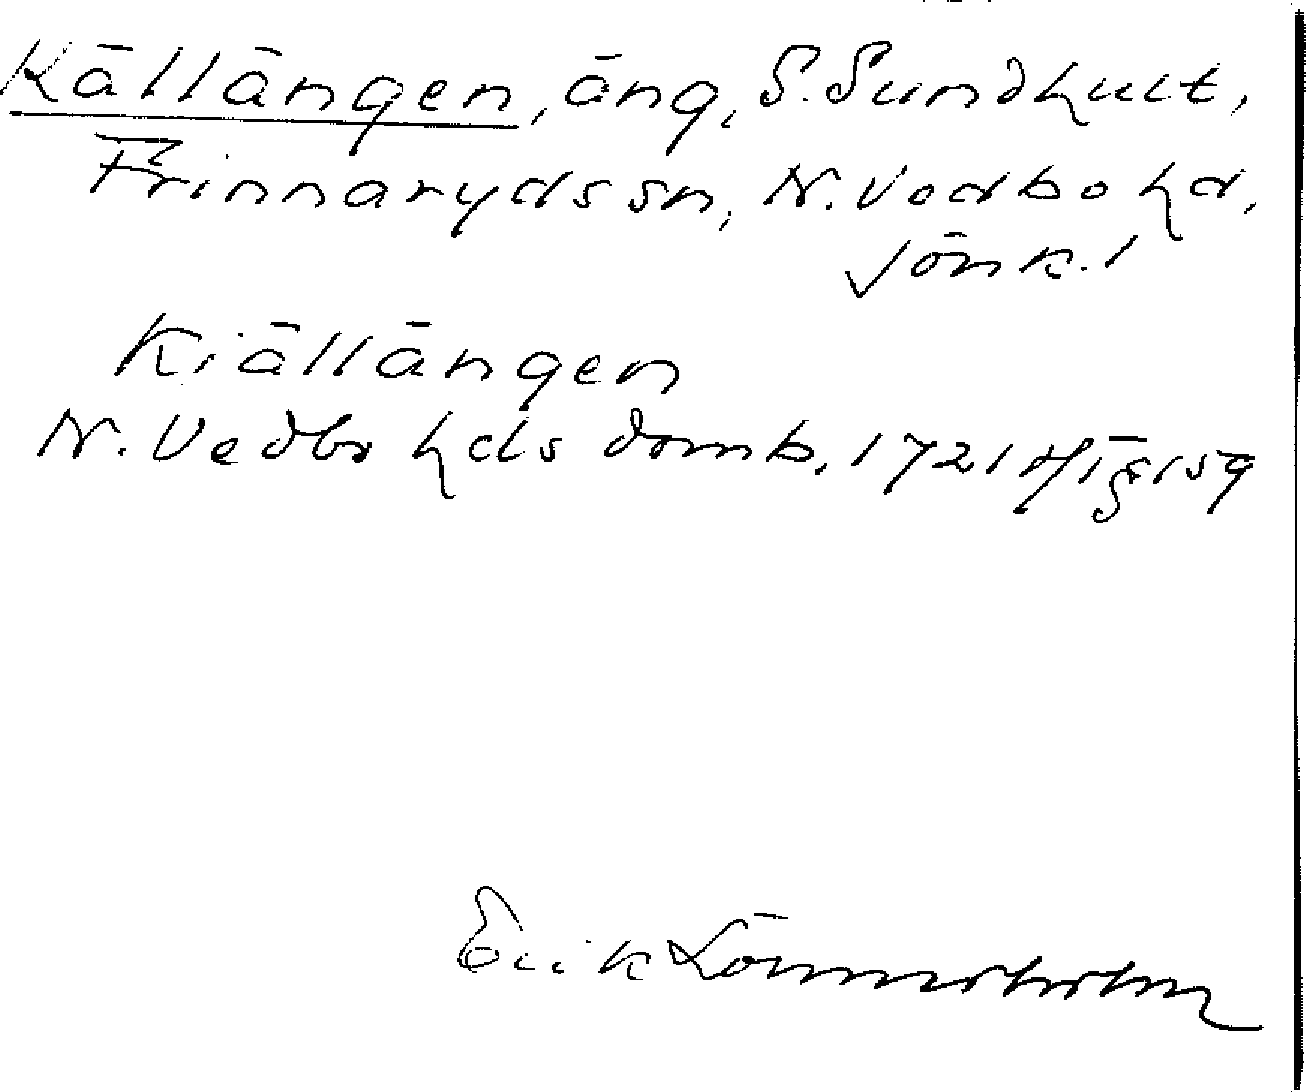 Källängen, äng, S. Sundhult,
Frinnaryds sn, N. Vedbo hd,
Jönk. l
Kiällängen
N. Vedbo hds domb. 1721 4/1 § 159
Erik Lönnerholm